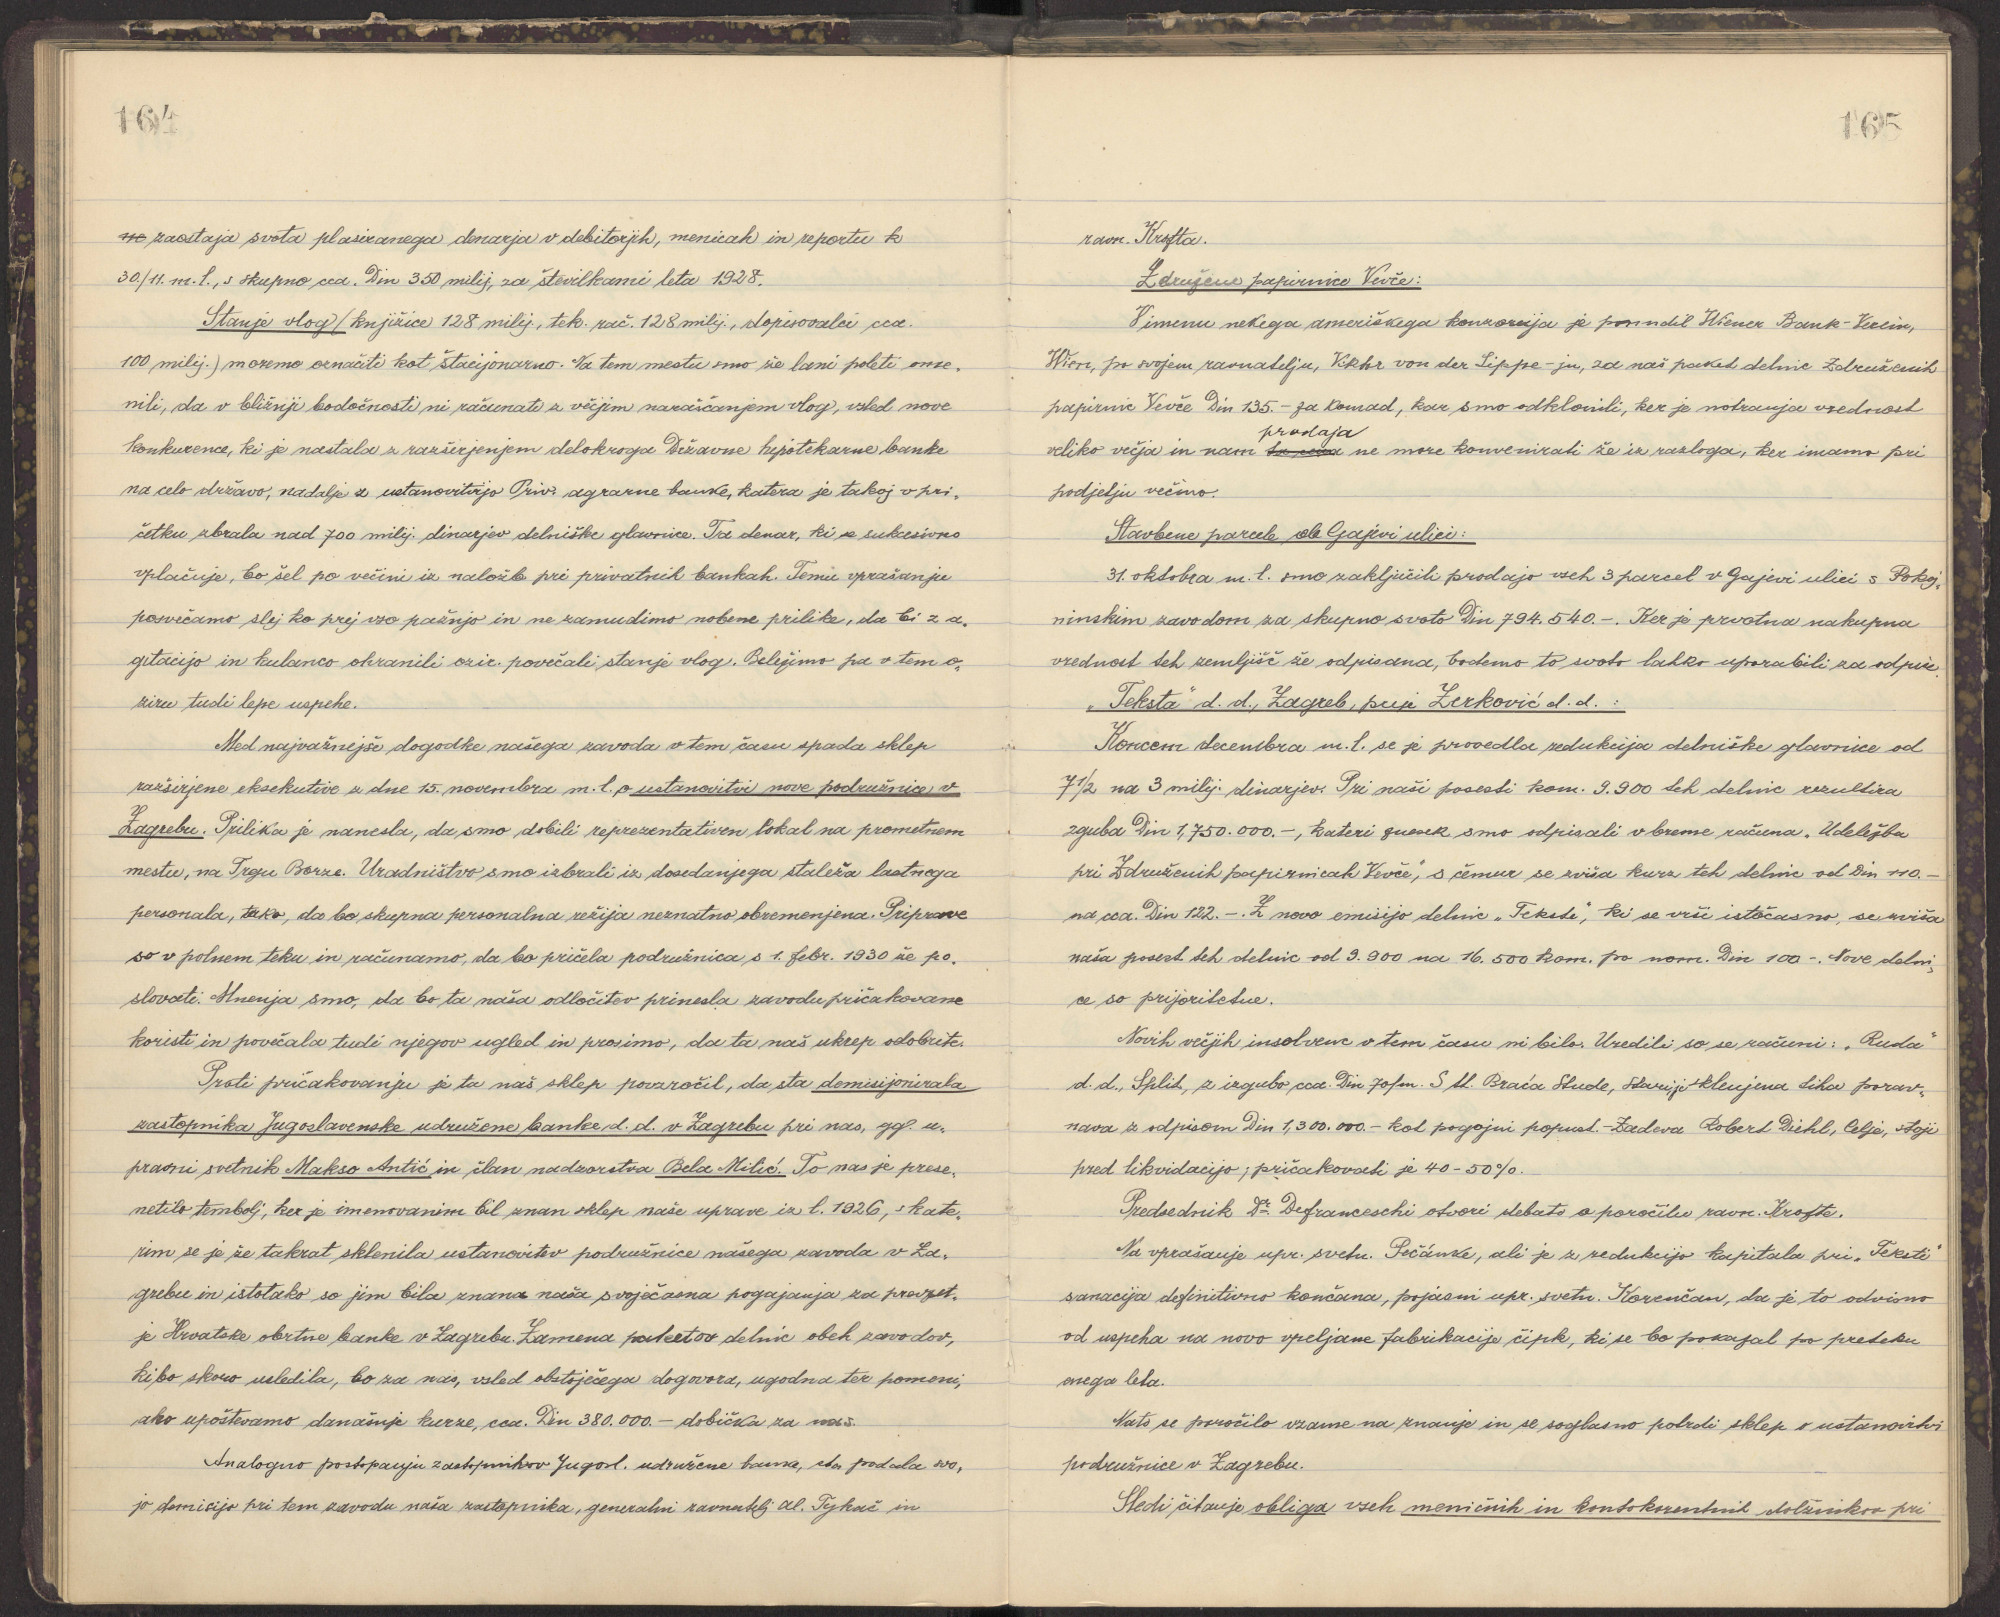 164
ne zaostaja svota plasiranega denarja v debitorjih, menicah in reportu k
30./11. m. l., s skupno cca. Din 350 milij. za številkami leta 1928.
Stanje vlog (knjižice 128 milij., tek. rač. 128 milij., dopisovalci cca.
100 milij.) moremo označiti kot štacijonarno. Na tem mestu smo že lani poleti ome-
nili, da v bližnji bodočnosti ni računati z večjim naraščanjem vlog, vsled nove
konkurence, ki je nastala z razširjenjem delokroga Državne hipotekarne banke
na celo državo, nadalje z ustanovitvijo Priv. agrarne banke, katera je takoj v pri-
četku zbrala nad 700 milij. dinarjev delniške glavnice. Ta denar, ki se sukcesivno
vplačuje, bo šel po večini iz naložb pri privatnih bankah. Temu vprašanju
posvečamo slej ko prej vso pažnjo in ne zamudimo nobene prilike, da bi z a-
gitacijo in kulanco ohranili ozir. povečali stanje vlog. Beležimo pa v tem o-
ziru tudi lepe uspehe.
Med najvažnejše dogodke našega zavoda v tem času spada sklep
razširjene eksekutive z dne 15. novembra m. l. o ustanovitvi nove podružnice v
Zagrebu. Prilika je nanesla, da smo dobili reprezentativen lokal na prometnem
mestu, na Trgu Borze. Uradništvo smo izbrali iz dosedanjega staleža lastnega
personala, tako, da bo skupna personalna režija neznatno obremenjena. Priprave
so v polnem teku in računamo, da bo pričela podružnica s 1. febr. 1930 že po-
slovati. Mnenja smo, da bo ta naša odločitev prinesla zavodu pričakovane
koristi in povečala tudi njegov ugled in prosimo, da ta naš ukrep odobrite.
Proti pričakovanju je ta naš sklep povzročil, da sta demisijonirala
zastopnika Jugoslavenske udružene banke d. d. v Zagrebu pri nas, gg. u-
pravni svetnik Makso Antić in član nadzorstva Bela Milić. To nas je prese-
netilo tembolj, ker je imenovanim bil znan sklep naše uprave iz l. 1926, s kate-
rim se je že takrat sklenila ustanovitev podružnice našega zavoda v Za-
grebu in istotako so jim bila znana naša svoječasna pogajanja za prevzet-
je Hrvatske obrtne banke v Zagrebu. Zamena paketov delnic obeh zavodov,
ki bo skoro usledila, bo za nas, vsled obstoječega dogovora, ugodna ter pomeni,
ako upoštevamo današnje kurze, cca. Din 380.000.- dobička za nas.
Analogno postopanju zastopnikov Jugosl. udružene banke, sta podala svo-
jo demisijo pri tem zavodu naša zastopnika, generalni ravnatelj Al. Tykač in
165
ravn. Krofta.
Združene papirnice Vevče:
V imenu nekega ameriškega konzorcija je ponudil Wiener Bank-Verein,
Wien, po svojem ravnatelju, von der Lippe-ju, za naš paket delnic Združenih
papirnic Vevče Din 135.- za komad, kar smo odklonili, ker je notranja vrednost
prodaja
veliko večja in nam ta cena ne more konvenirati že iz razloga, ker imamo pri
podjetju večino.
Stavbene parcele ob Gajevi ulici:
31. oktobra m. l. smo zaključili prodajo vseh 3 parcel v Gajevi ulici s Pokoj-
ninskim zavodom za skupno svoto Din 794.540.-. Ker je prvotna nakupna
vrednost teh zemljišč že odpisana, bodemo to svoto lahko uporabili za odpise.
"Teksta" d. d., Zagreb, prije Zerković d. d. :
Koncem decembra m. l. se je provedla redukcija delniške glavnice od
7 1/2 na 3 milij. dinarjev. Pri naši posesti kom. 9.900 teh delnic rezultira
zguba Din 1,750.000.-, kateri znesek smo odpisali v breme računa "Udeležba
pri Združenih papirnicah Vevče", s čemur se zviša kurz teh delnic od Din 110.-
na cca. Din 122.-. Z novo emisijo delnic "Tekste", ki se vrši istočasno, se zviša
naša posest teh delnic od 9.900 na 16.500 kom. po nom. Din 100-. Nove delni-
ce so prijoritetne.
Novih večjih insolvenc v tem času ni bilo. Uredili so se računi: "Ruda"
d. d., Split, z izgubo cca. Din 70/m. S tt. Braća Stude, sklenjena tiha porav-
nava z odpisom Din 1,300.000.- kot pogojni popust. - Zadeva Robert Diehl, Celje, stoji
pred likvidacijo; pričakovati je 40-50%.
Predsednik Dr. Defranceschi otvori debato o poročilu ravn. Krofte.
Na vprašanje upr. svetn. Pečánke, ali je z redukcijo kapitala pri "Teksti"
sanacija definitivno končana, pojasni upr. svetn. Korenčan, da je to odvisno
od uspeha na novo vpeljane fabrikacije čipk, ki se bo pokazal po preteku
enega leta.
Nato se poročilo vzame na znanje in se soglasno potrdi sklep o ustanovitvi
podružnice v Zagrebu.
Sledi čitanje obliga vseh meničnih in kontokorentnih dolžnikov pri